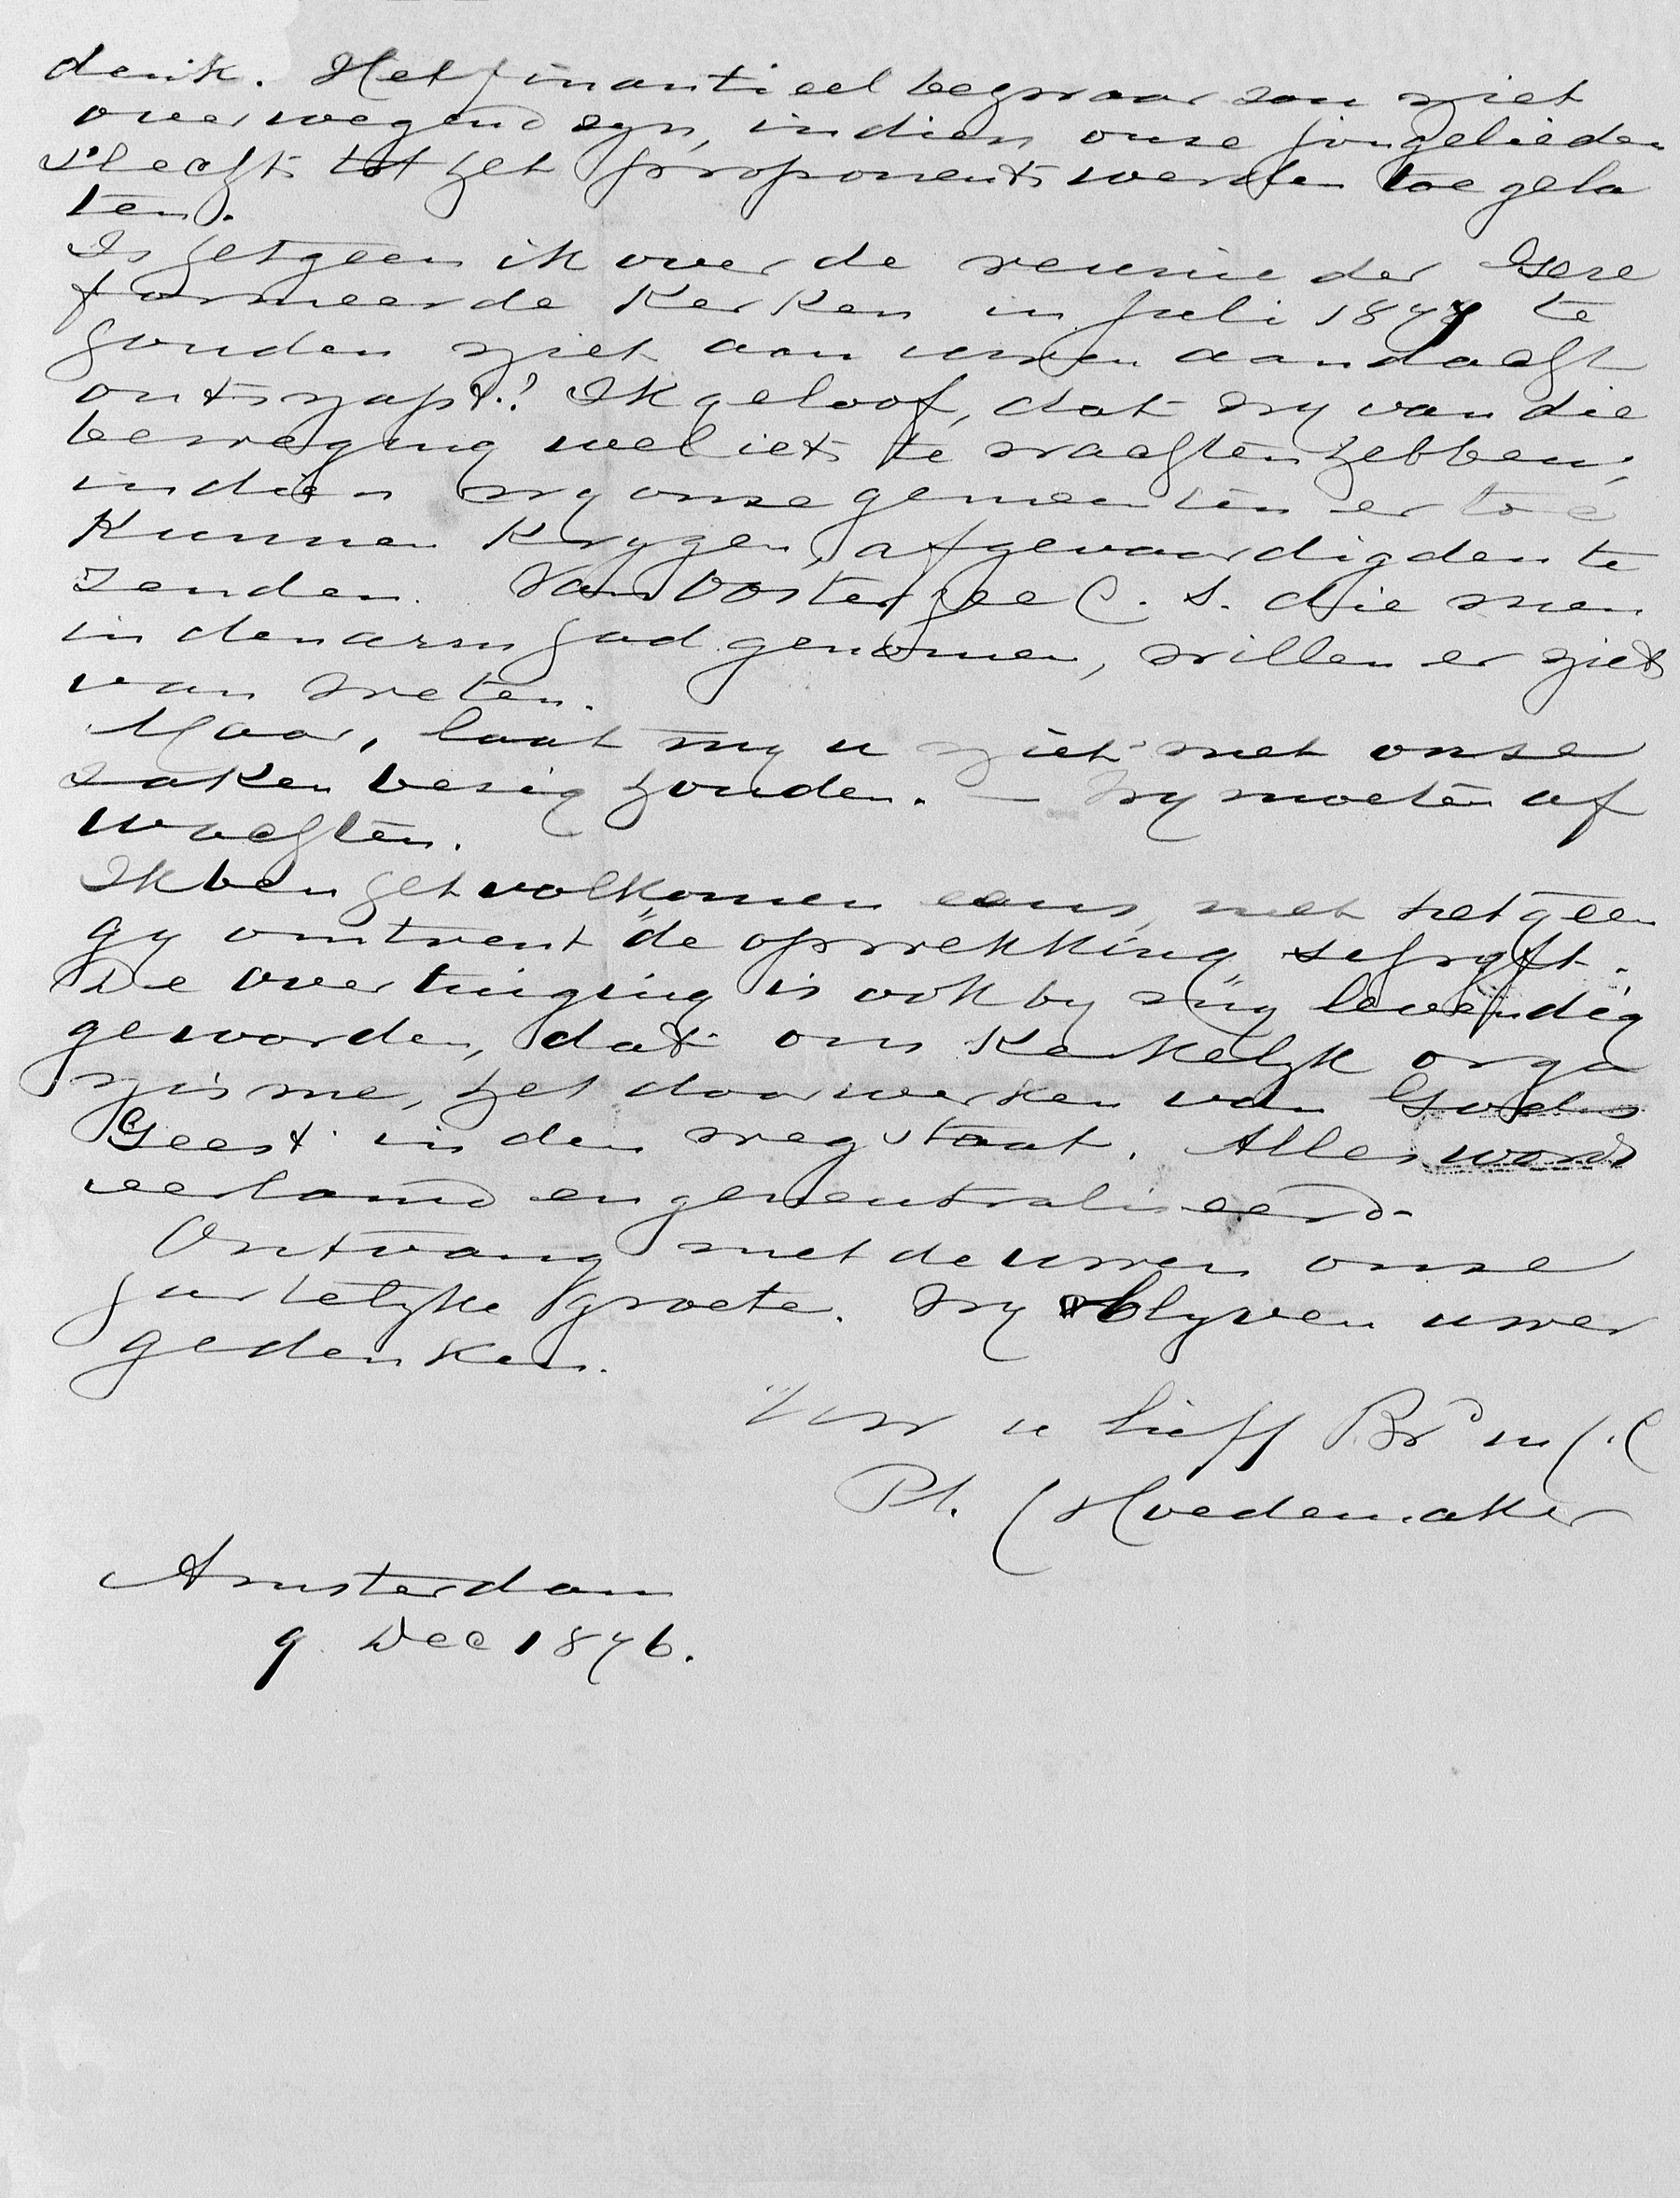 denk. Het finantieel bezwaar zou niet
overwegend zyn, indien onze jongelieden
slechts tot het proponents werden toegela
ten.
Is hetgeen ik over de reunie der Gere
formeerde Kerken in Juli 1877 te
houden niet aan uwen aandacht
ontsnapt? Ik geloof, dat wy van die
beweging wel iets te wachten hebben,
indien wy onze gemeenten er toe
kunnen krygen, afgevaardigden te
zenden. Van Oosterzee C. S. die men
in den arm had genomen, willen er niet
van weten.
Maar, laat my u niet met onze
zaken bezig houden. — Wy moeten af
wachten.
Ik ben het volkomen eens, met hetgeen
gy omtrent "de opwekking" schryft.
De overtuiging is ook by my levendig
geworden, dat ons Kerkelyk orga
nisme, het doorwerken van Gods
Geest in den weg staat. Alles wordt
verlamd en geneutraliseerd.
Ontvang met de uwen onze
hartelyke groete. Wy blyven uwer
gedenken.
Uw u liefh Br in J. C
Ph. J Hoedemaker
Amsterdam
9 Dec 1876.